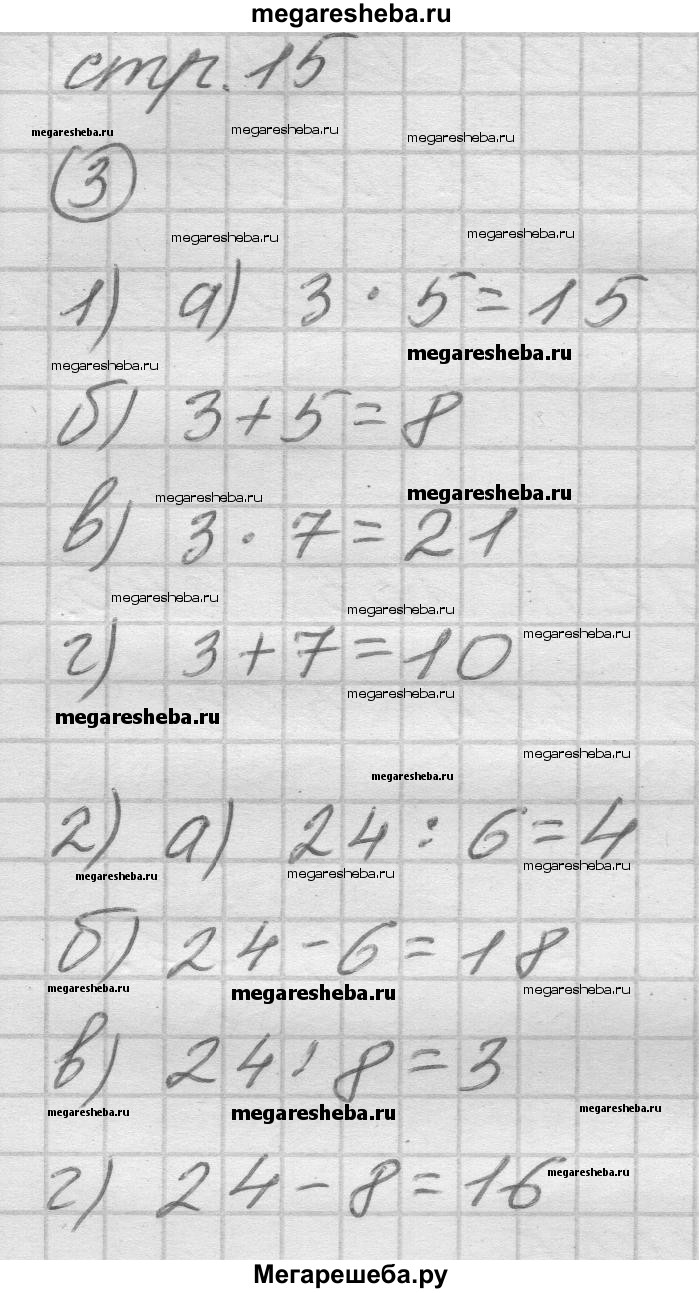 megaresheba.ru
стр. 15
megaresheba.ru megaresheba.ru megaresheba.ru
3
megaresheba.ru megaresheba.ru
1) а) 3 · 5 = 15
megaresheba.ru megaresheba.ru
б) 3 + 5 = 8
megaresheba.ru megaresheba.ru
в) 3 · 7 = 21
megaresheba.ru megaresheba.ru megaresheba.ru
г) 3 + 7 = 10
megaresheba.ru megaresheba.ru
megaresheba.ru megaresheba.ru
2) а) 24 : 6 = 4
megaresheba.ru megaresheba.ru megaresheba.ru
б) 24 - 6 = 18
megaresheba.ru megaresheba.ru megaresheba.ru
в) 24 : 8 = 3
megaresheba.ru megaresheba.ru megaresheba.ru
г) 24 - 8 = 16 megaresheba.ru
Мегарешеба.ру